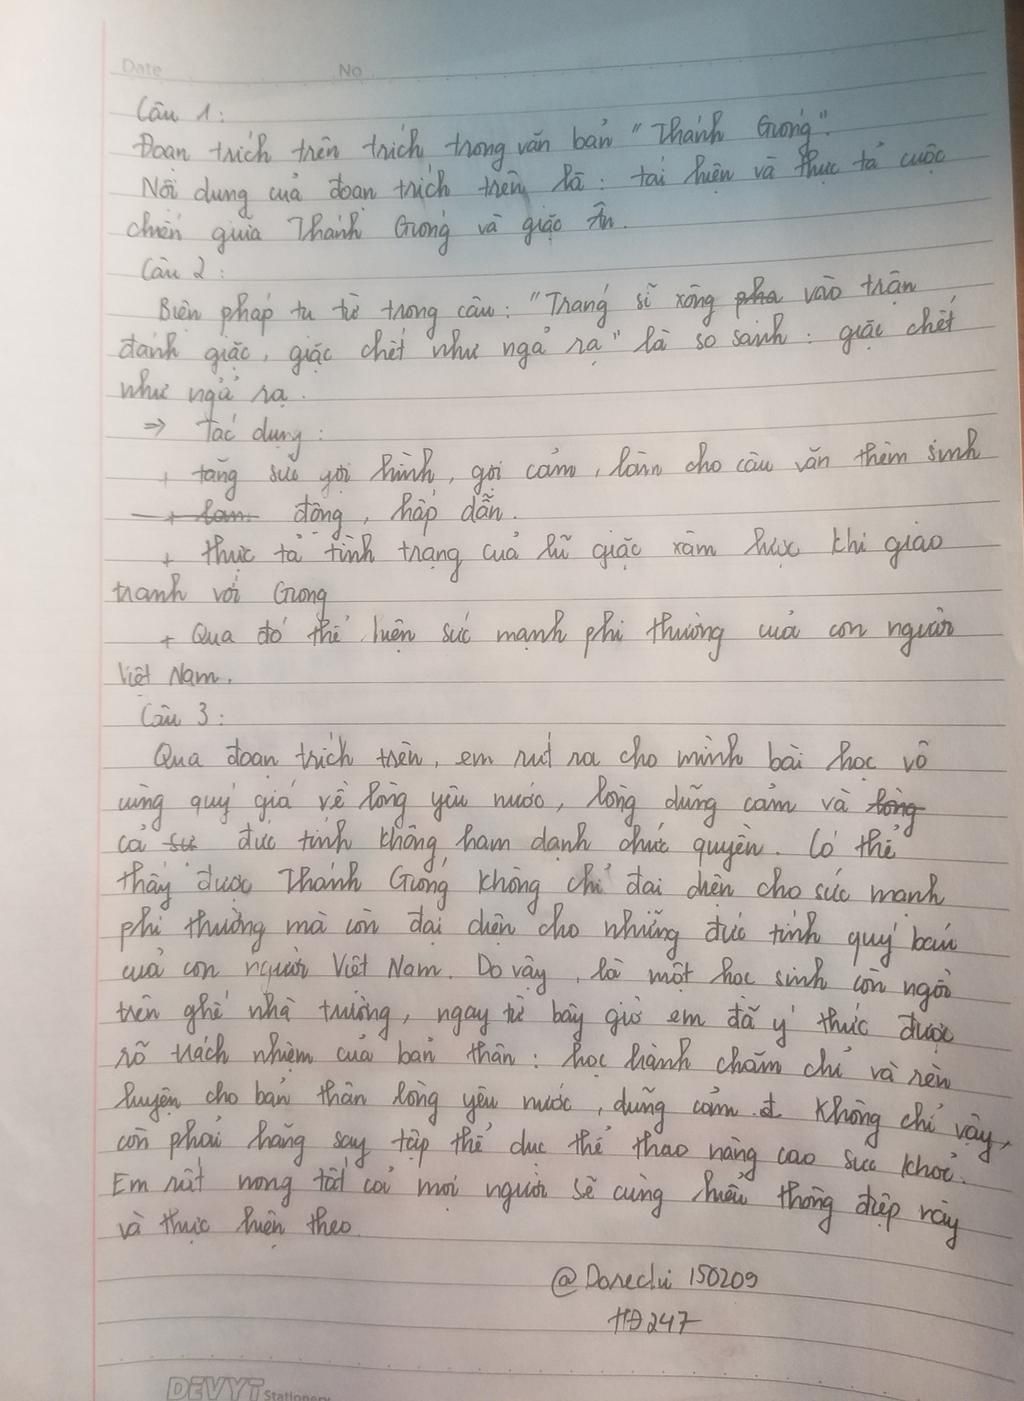 Date No
Câu 1:
Đoạn trích trên trích trong văn bản "Thánh Gióng".
Nội dung của đoạn trích trên là: tái hiện và thực tả cuộc
chiến giữa Thánh Gióng và giặc Ân.
Câu 2:
Biện pháp tu từ trong câu: "Tráng sĩ xông pha vào trận
đánh giặc, giặc chết như ngả rạ" là so sánh: giặc chết
như ngả rạ.
=> Tác dụng:
+ tăng sức gợi hình, gợi cảm, làm cho câu văn thêm sinh
+ làm động, hấp dẫn.
+ thực tả tình trạng của lũ giặc xâm lược khi giao
tranh với Gióng
+ Qua đó thể hiện sức mạnh phi thường của con người
Việt Nam.
Câu 3:
Qua đoạn trích trên, em rút ra cho mình bài học vô
cùng quý giá về lòng yêu nước, lòng dũng cảm và lòng
cả sự đức tính không ham danh chức quyền. Có thể
thấy được Thánh Gióng không chỉ đại diện cho sức mạnh
phi thường mà còn đại diện cho những đức tính quý báu
của con người Việt Nam. Do vậy, là một học sinh còn ngồi
trên ghế nhà trường, ngay từ bây giờ em đã ý thức được
rõ trách nhiệm của bản thân: học hành chăm chỉ và rèn
luyện cho bản thân lòng yêu nước, dũng cảm. Không chỉ vậy,
còn phải hăng say tập thể dục thể thao nâng cao sức khoẻ.
Em rất mong tất cả mọi người sẽ cùng hiểu thông điệp này
và thực hiện theo
@Dorechi 150209
HĐ247
DEVYT Stationery